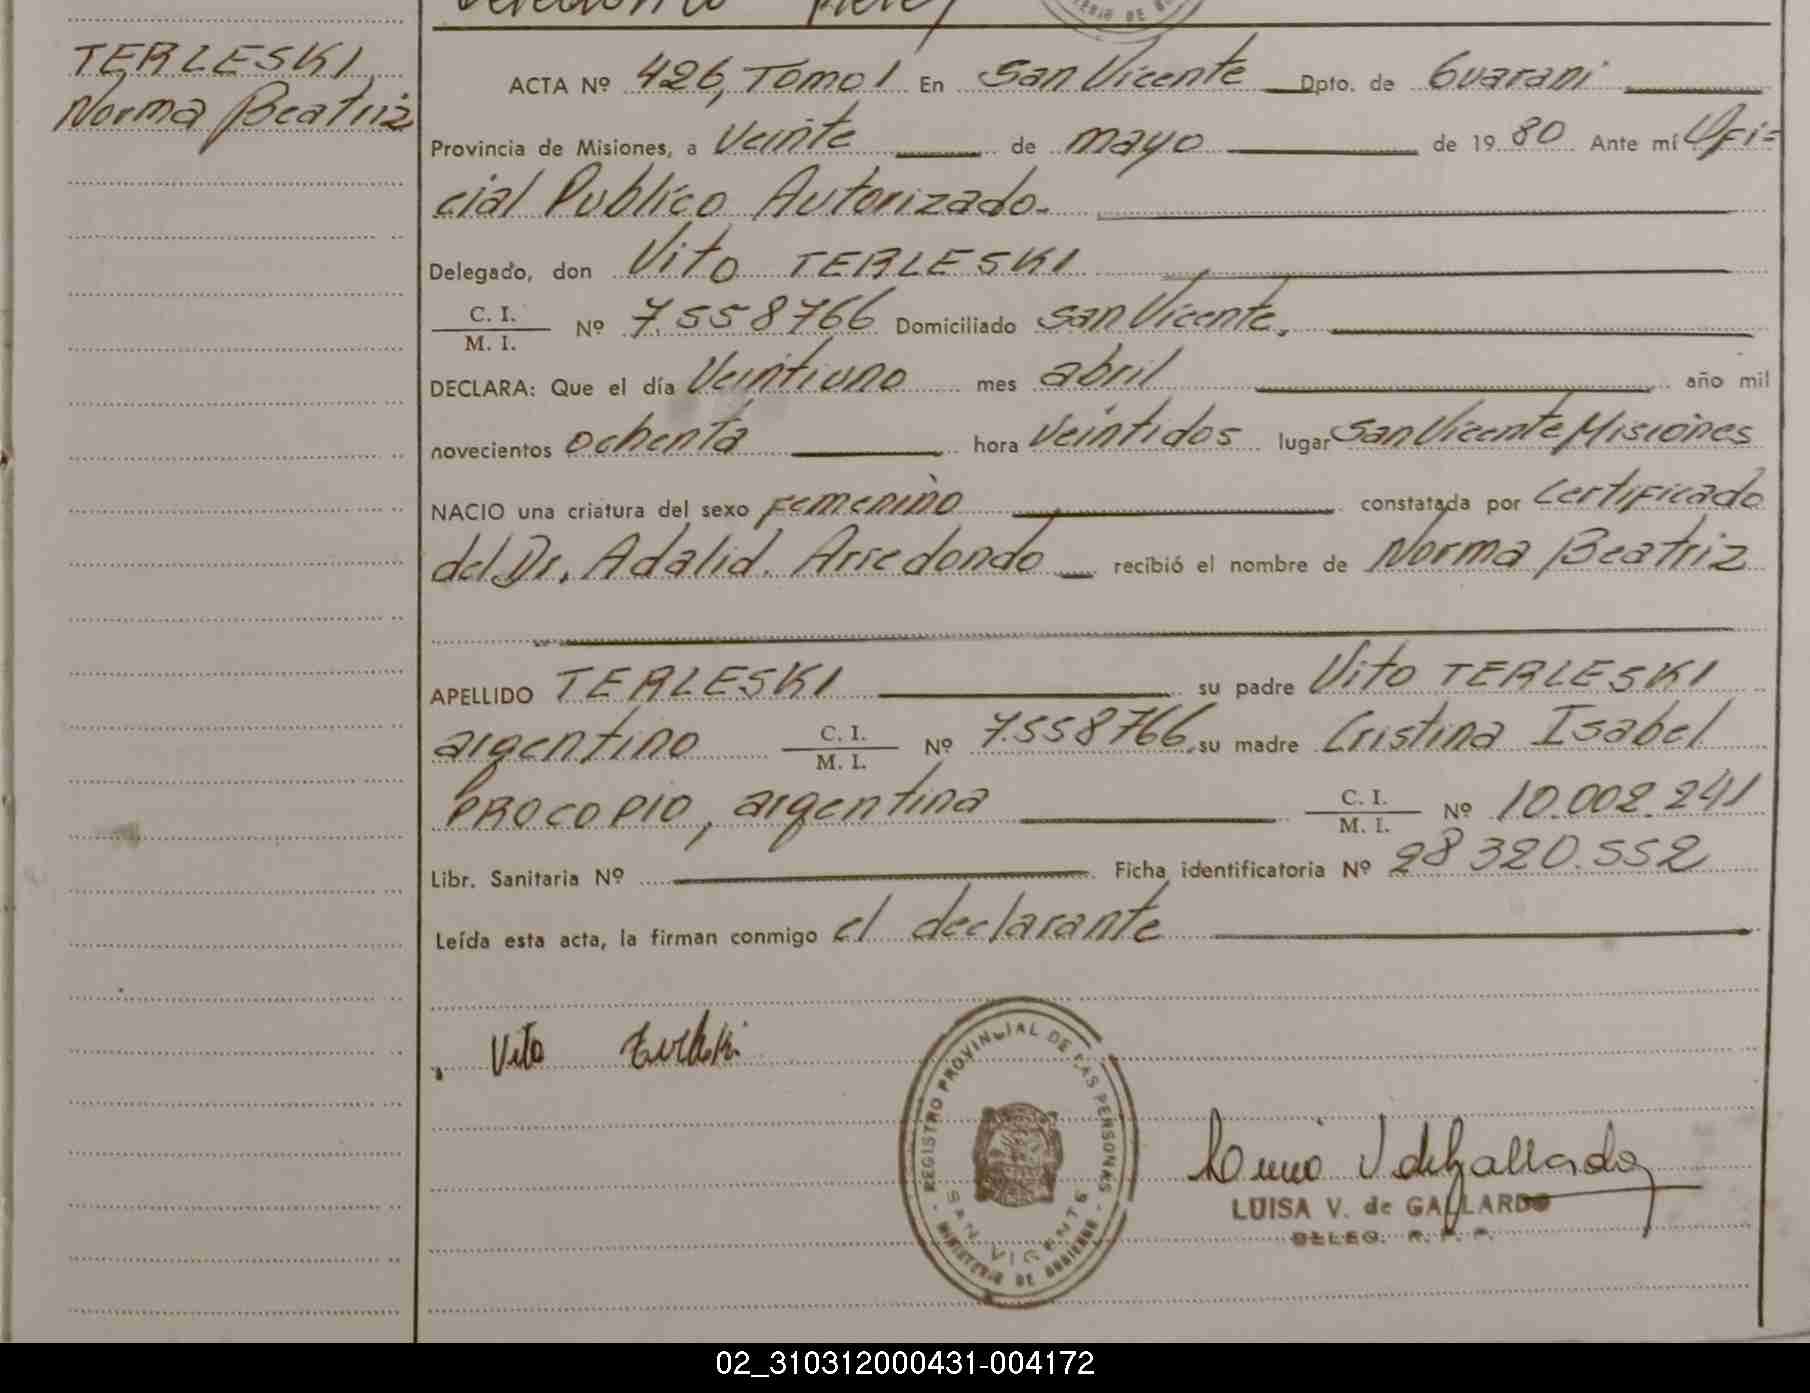 TERLESKI
Norma Beatriz
ACTA Nº 426, Tomo 1 En San Vicente Dpto. de Guarani
Provincia de Misiones, a Veinte de mayo de 1980 Ante mí Ofi=
cial Publico Autorizado.
Delegado, don Vito TERLESKI
C. I.
M. I. Nº 7.558766 Domiciliado San Vicente.
DECLARA: Que el día Veintiuno mes abril año mil
novecientos ochenta hora veintidos lugar San Vicente Misiones
NACIO una criatura del sexo Femenino constatada por Certificado
del Dr. Adalid. Arredondo recibió el nombre de Norma Beatriz
APELLIDO TERLESKI su padre Vito TERLESKI
argentino C. I. M. I. Nº 7.558766. su madre Cristina Isabel
PROCOPIO, argentina C. I. M. I. Nº 10.002.241
Libr. Sanitaria Nº Ficha identificatoria Nº 28320.552
Leída esta acta, la firman conmigo el declarante
Vito Terleski
REGISTRO PROVINCIAL DE LAS PERSONAS
SAN VICENTE
- MINISTERIO DE GOBIERNO -
LUISA V. de GALLARDO
DELEG. R. P. P.
02_310312000431-004172